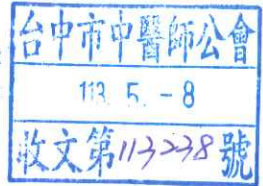 台中市中醫師公會
113. 5. -8
收文第113238號